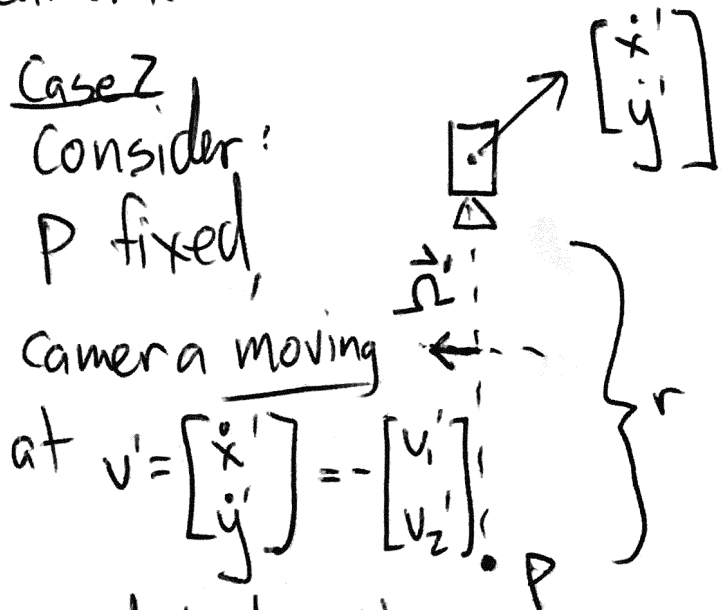 Case 2
Consider:
P fixed,
camera moving
at v' = [ẋ' ẏ'] = - [v₁' v₂']
[ẋ' ẏ']
r
P